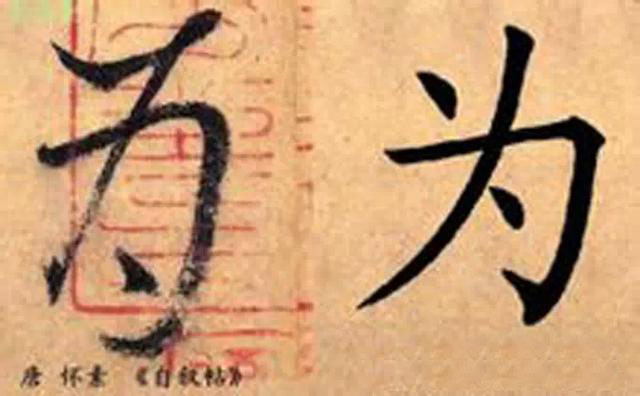 为 为
唐 怀素 《自叙帖》